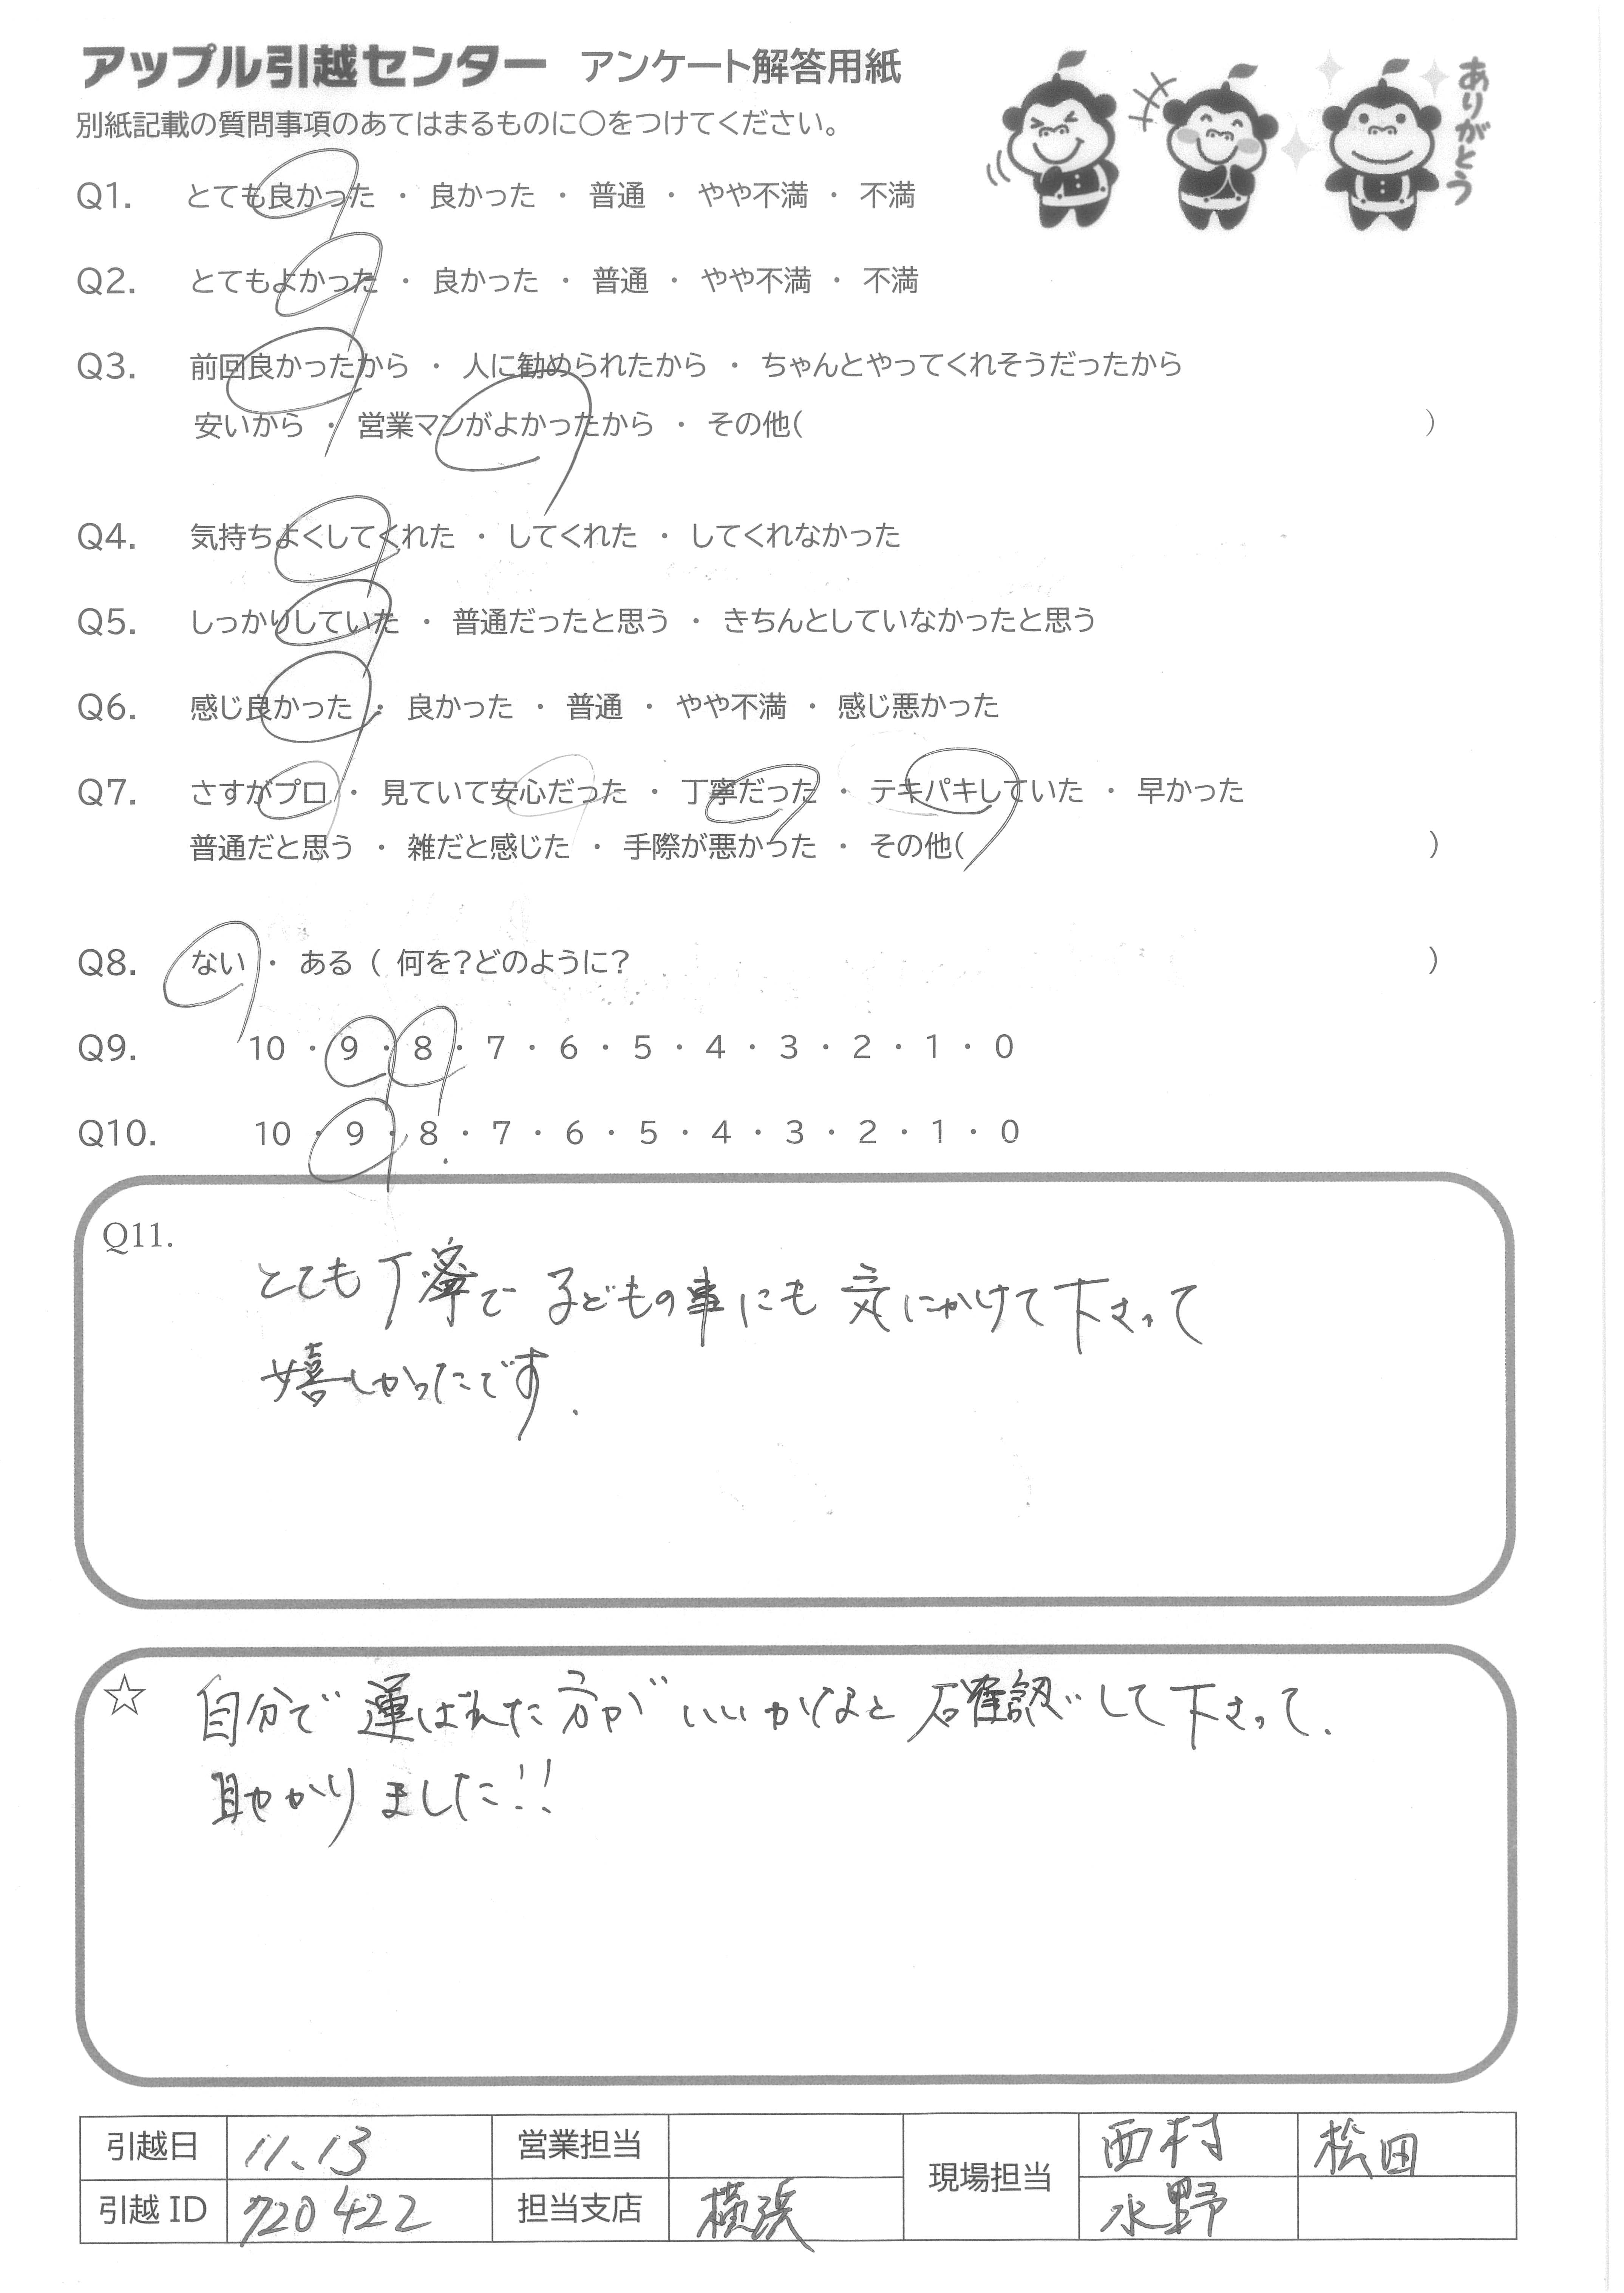 アップル引越センター アンケート解答用紙
ありがとう
別紙記載の質問事項のあてはまるものに〇をつけてください。
Q1. とても良かった ・ 良かった ・ 普通 ・ やや不満 ・ 不満
Q2. とてもよかった ・ 良かった ・ 普通 ・ やや不満 ・ 不満
Q3. 前回良かったから ・ 人に勧められたから ・ ちゃんとやってくれそうだったから
安いから ・ 営業マンがよかったから ・ その他( )
Q4. 気持ちよくしてくれた ・ してくれた ・ してくれなかった
Q5. しっかりしていた ・ 普通だったと思う ・ きちんとしていなかったと思う
Q6. 感じ良かった ・ 良かった ・ 普通 ・ やや不満 ・ 感じ悪かった
Q7. さすがプロ ・ 見ていて安心だった ・ 丁寧だった ・ テキパキしていた ・ 早かった
普通だと思う ・ 雑だと感じた ・ 手際が悪かった ・ その他( )
Q8. ない ・ ある ( 何を?どのように? )
Q9. 10 ・ 9 ・ 8 ・ 7 ・ 6 ・ 5 ・ 4 ・ 3 ・ 2 ・ 1 ・ 0
Q10. 10 ・ 9 ・ 8 ・ 7 ・ 6 ・ 5 ・ 4 ・ 3 ・ 2 ・ 1 ・ 0
Q11.
とても丁寧で 子どもの事にも 気にかけて下さって
嬉しかったです.
☆ 自分で運ばれた方がいいかなと 確認して下さって.
助かりました!!
引越日 11.13 営業担当 現場担当 西村 松田
引越ID 720422 担当支店 横浜 水野